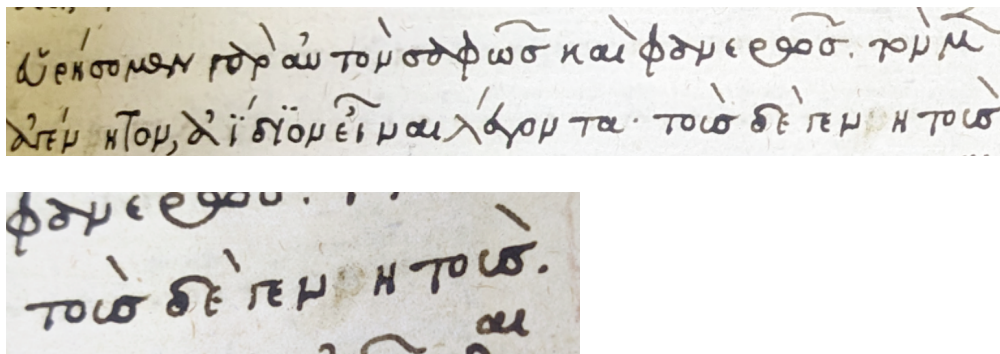 εὑρήσομεν γὰρ αὐτὸν σαφῶς καὶ φανερῶς. τὸν μ̂
ἀγέν ητον, ἀΐδϊον εἶναι λέγοντα· τοὶς δὲ γεν ητοὶς
φανερῶς.
τοὶς δὲ γεν ητοὶς.
αι